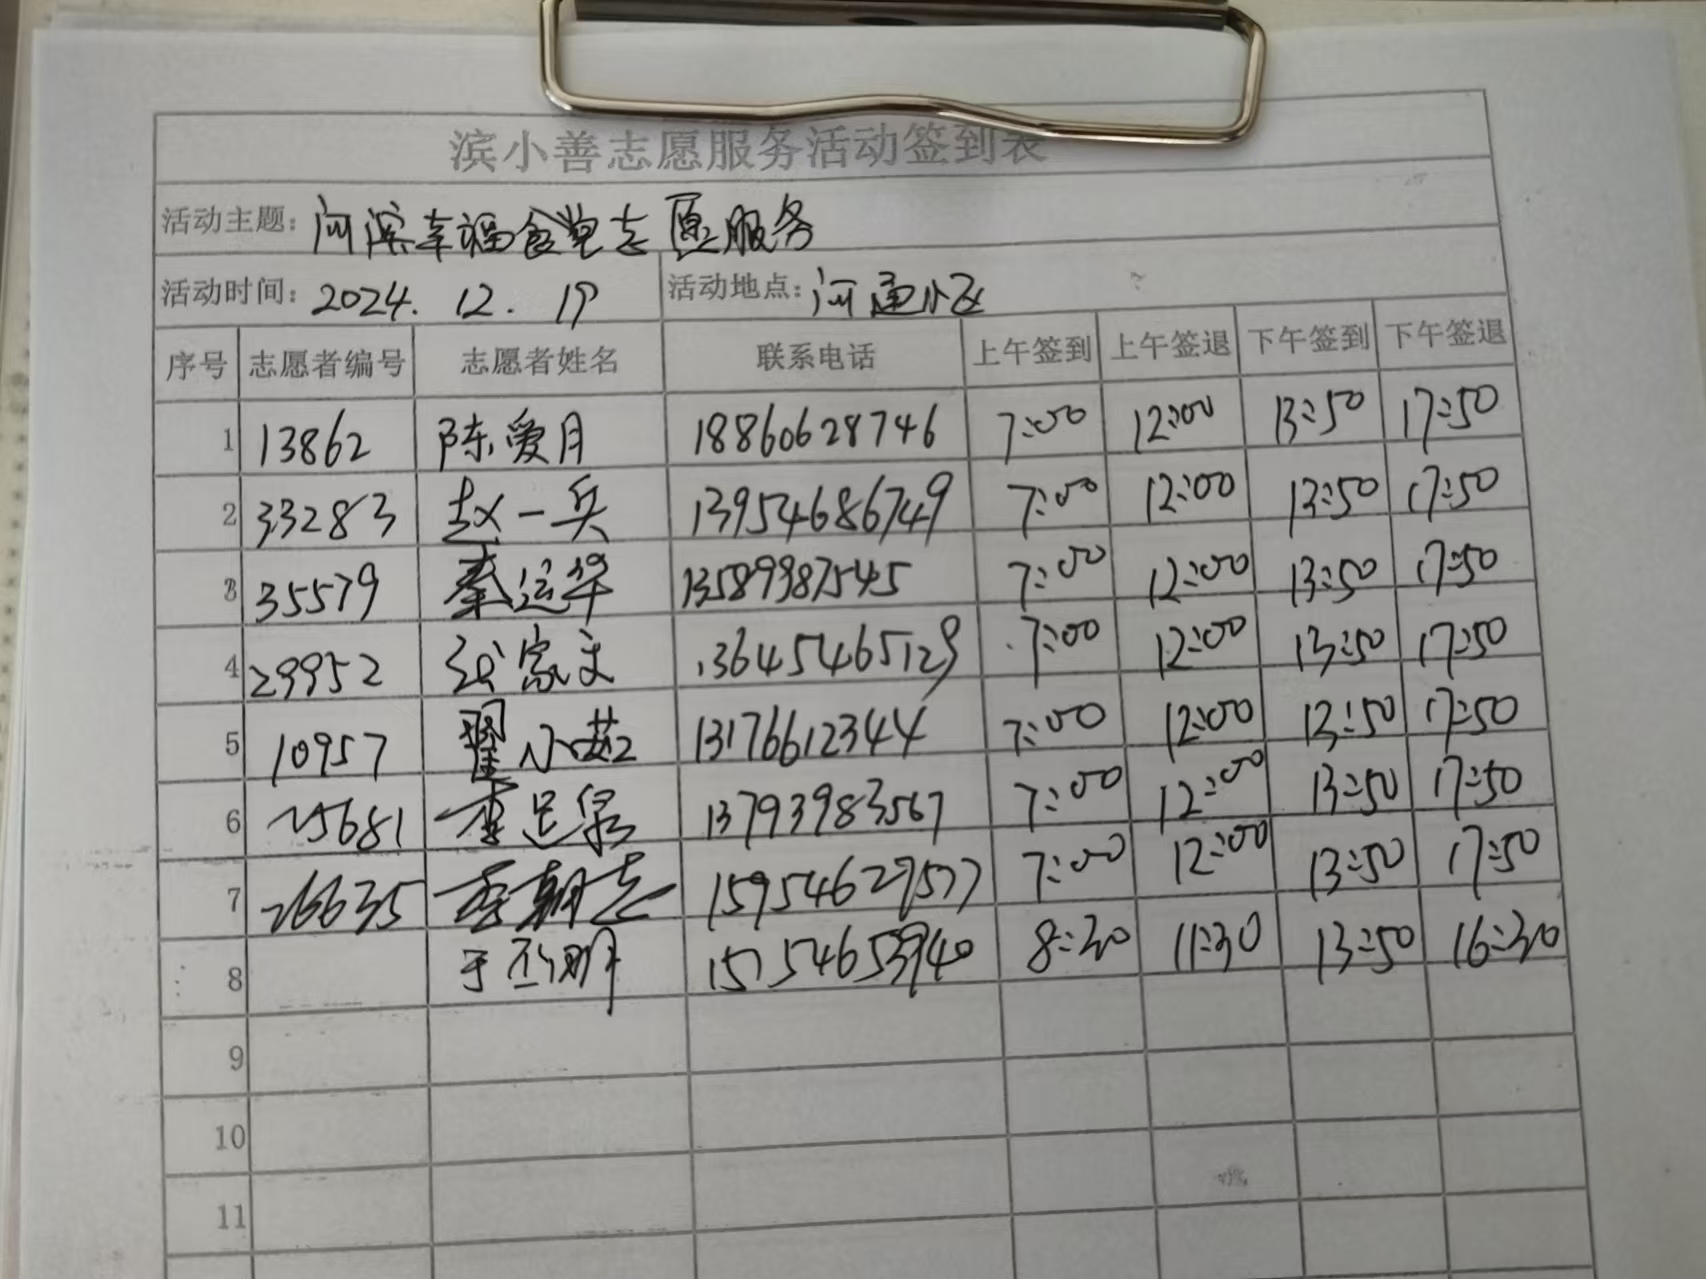 滨小善志愿服务活动签到表
活动主题: 河滨幸福食堂志愿服务
活动时间: 2024. 12. 19 活动地点: 河通小区
序号 志愿者编号 志愿者姓名 联系电话 上午签到 上午签退 下午签到 下午签退
1 13862 陈爱月 18860628746 7:00 12:00 13:50 17:50
2 33283 赵一兵 13954686749 7:00 12:00 13:50 17:50
3 35579 秦运华 13589987545 7:00 12:00 13:50 17:50
4 29952 张家文 13645465129 7:00 12:00 13:50 17:50
5 10957 翟小茹 13176612344 7:00 12:00 13:50 17:50
6 25681 李足泉 13793983567 7:00 12:00 13:50 17:50
7 26635 李朝志 15954629577 7:00 12:00 13:50 17:50
8 于丕明 8:30 11:30 13:50 16:30
9
10
11